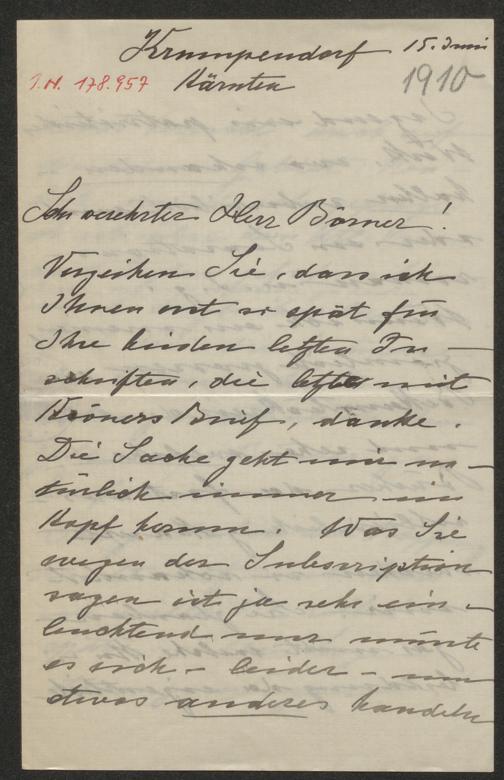 Krumpendorf 15. Juni
I.N. 178.957 Kärnten 1910
Sehr verehrter Herr Börner!
Verzeihen Sie, dass ich
Ihnen erst so spät für
Ihre beiden letzten Zu-
schriften, die letzte mit
Kröners Brief, danke.
Die Sache geht mir na-
türlich immer im
Kopf herum. Was Sie
wegen der Subscription
sagen ist ja sehr ein-
leuchtend nur müsste
es sich – leider – um
etwas anderes handeln